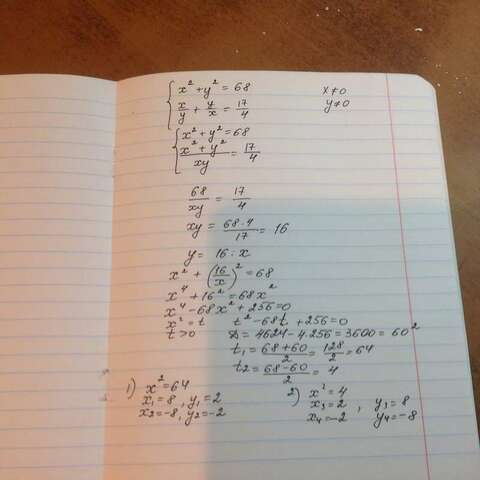 x² + y² = 68    x ≠ 0
x/y + y/x = 17/4    y ≠ 0
x² + y² = 68
(x² + y²)/xy = 17/4
68/xy = 17/4
xy = 68·4/17 = 16
y = 16 : x
x² + (16/x)² = 68
x⁴ + 16² = 68x²
x⁴ - 68x² + 256 = 0
x² = t    t² - 68t + 256 = 0
t > 0    D = 4624 - 4.256 = 3600 = 60²
t₁ = (68+60)/2 = 128/2 = 64
t₂ = (68-60)/2 = 4
1) x² = 64    2) x² = 4
x₁ = 8, y₁ = 2    x₃ = 2, y₃ = 8
x₂ = -8, y₂ = -2    x₄ = -2    y₄ = -8